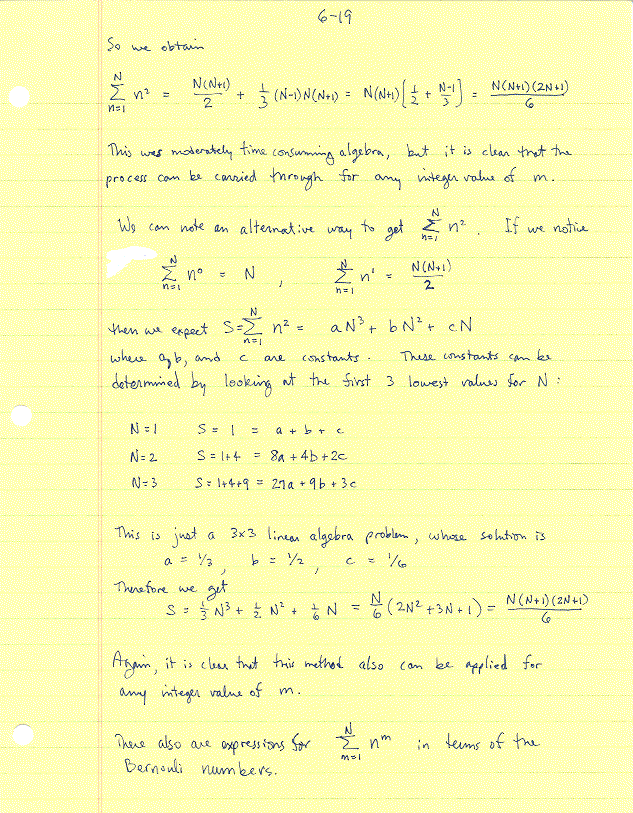 6-19
So we obtain
N∑n=1 n² = N(N+1)/2 + 1/3 (N-1)N(N+1) = N(N+1)[1/2 + N-1/3] = N(N+1)(2N+1)/6
This was moderately time consuming algebra, but it is clear that the
process can be carried through for any integer value of m.
We can note an alternative way to get N∑n=1 n². If we notice
N∑n=1 n⁰ = N , N∑n=1 n¹ = N(N+1)/2
then we expect S = N∑n=1 n² = aN³ + bN² + cN
where a, b, and c are constants. These constants can be
determined by looking at the first 3 lowest values for N:
N=1 S = 1 = a + b + c
N=2 S = 1+4 = 8a + 4b + 2c
N=3 S = 1+4+9 = 27a + 9b + 3c
This is just a 3x3 linear algebra problem, whose solution is
a = 1/3, b = 1/2, c = 1/6
Therefore we get
S = 1/3 N³ + 1/2 N² + 1/6 N = N/6 (2N² + 3N + 1) = N(N+1)(2N+1)/6
Again, it is clear that this method also can be applied for
any integer value of m.
There also are expressions for N∑m=1 nᵐ in terms of the
Bernouli numbers.